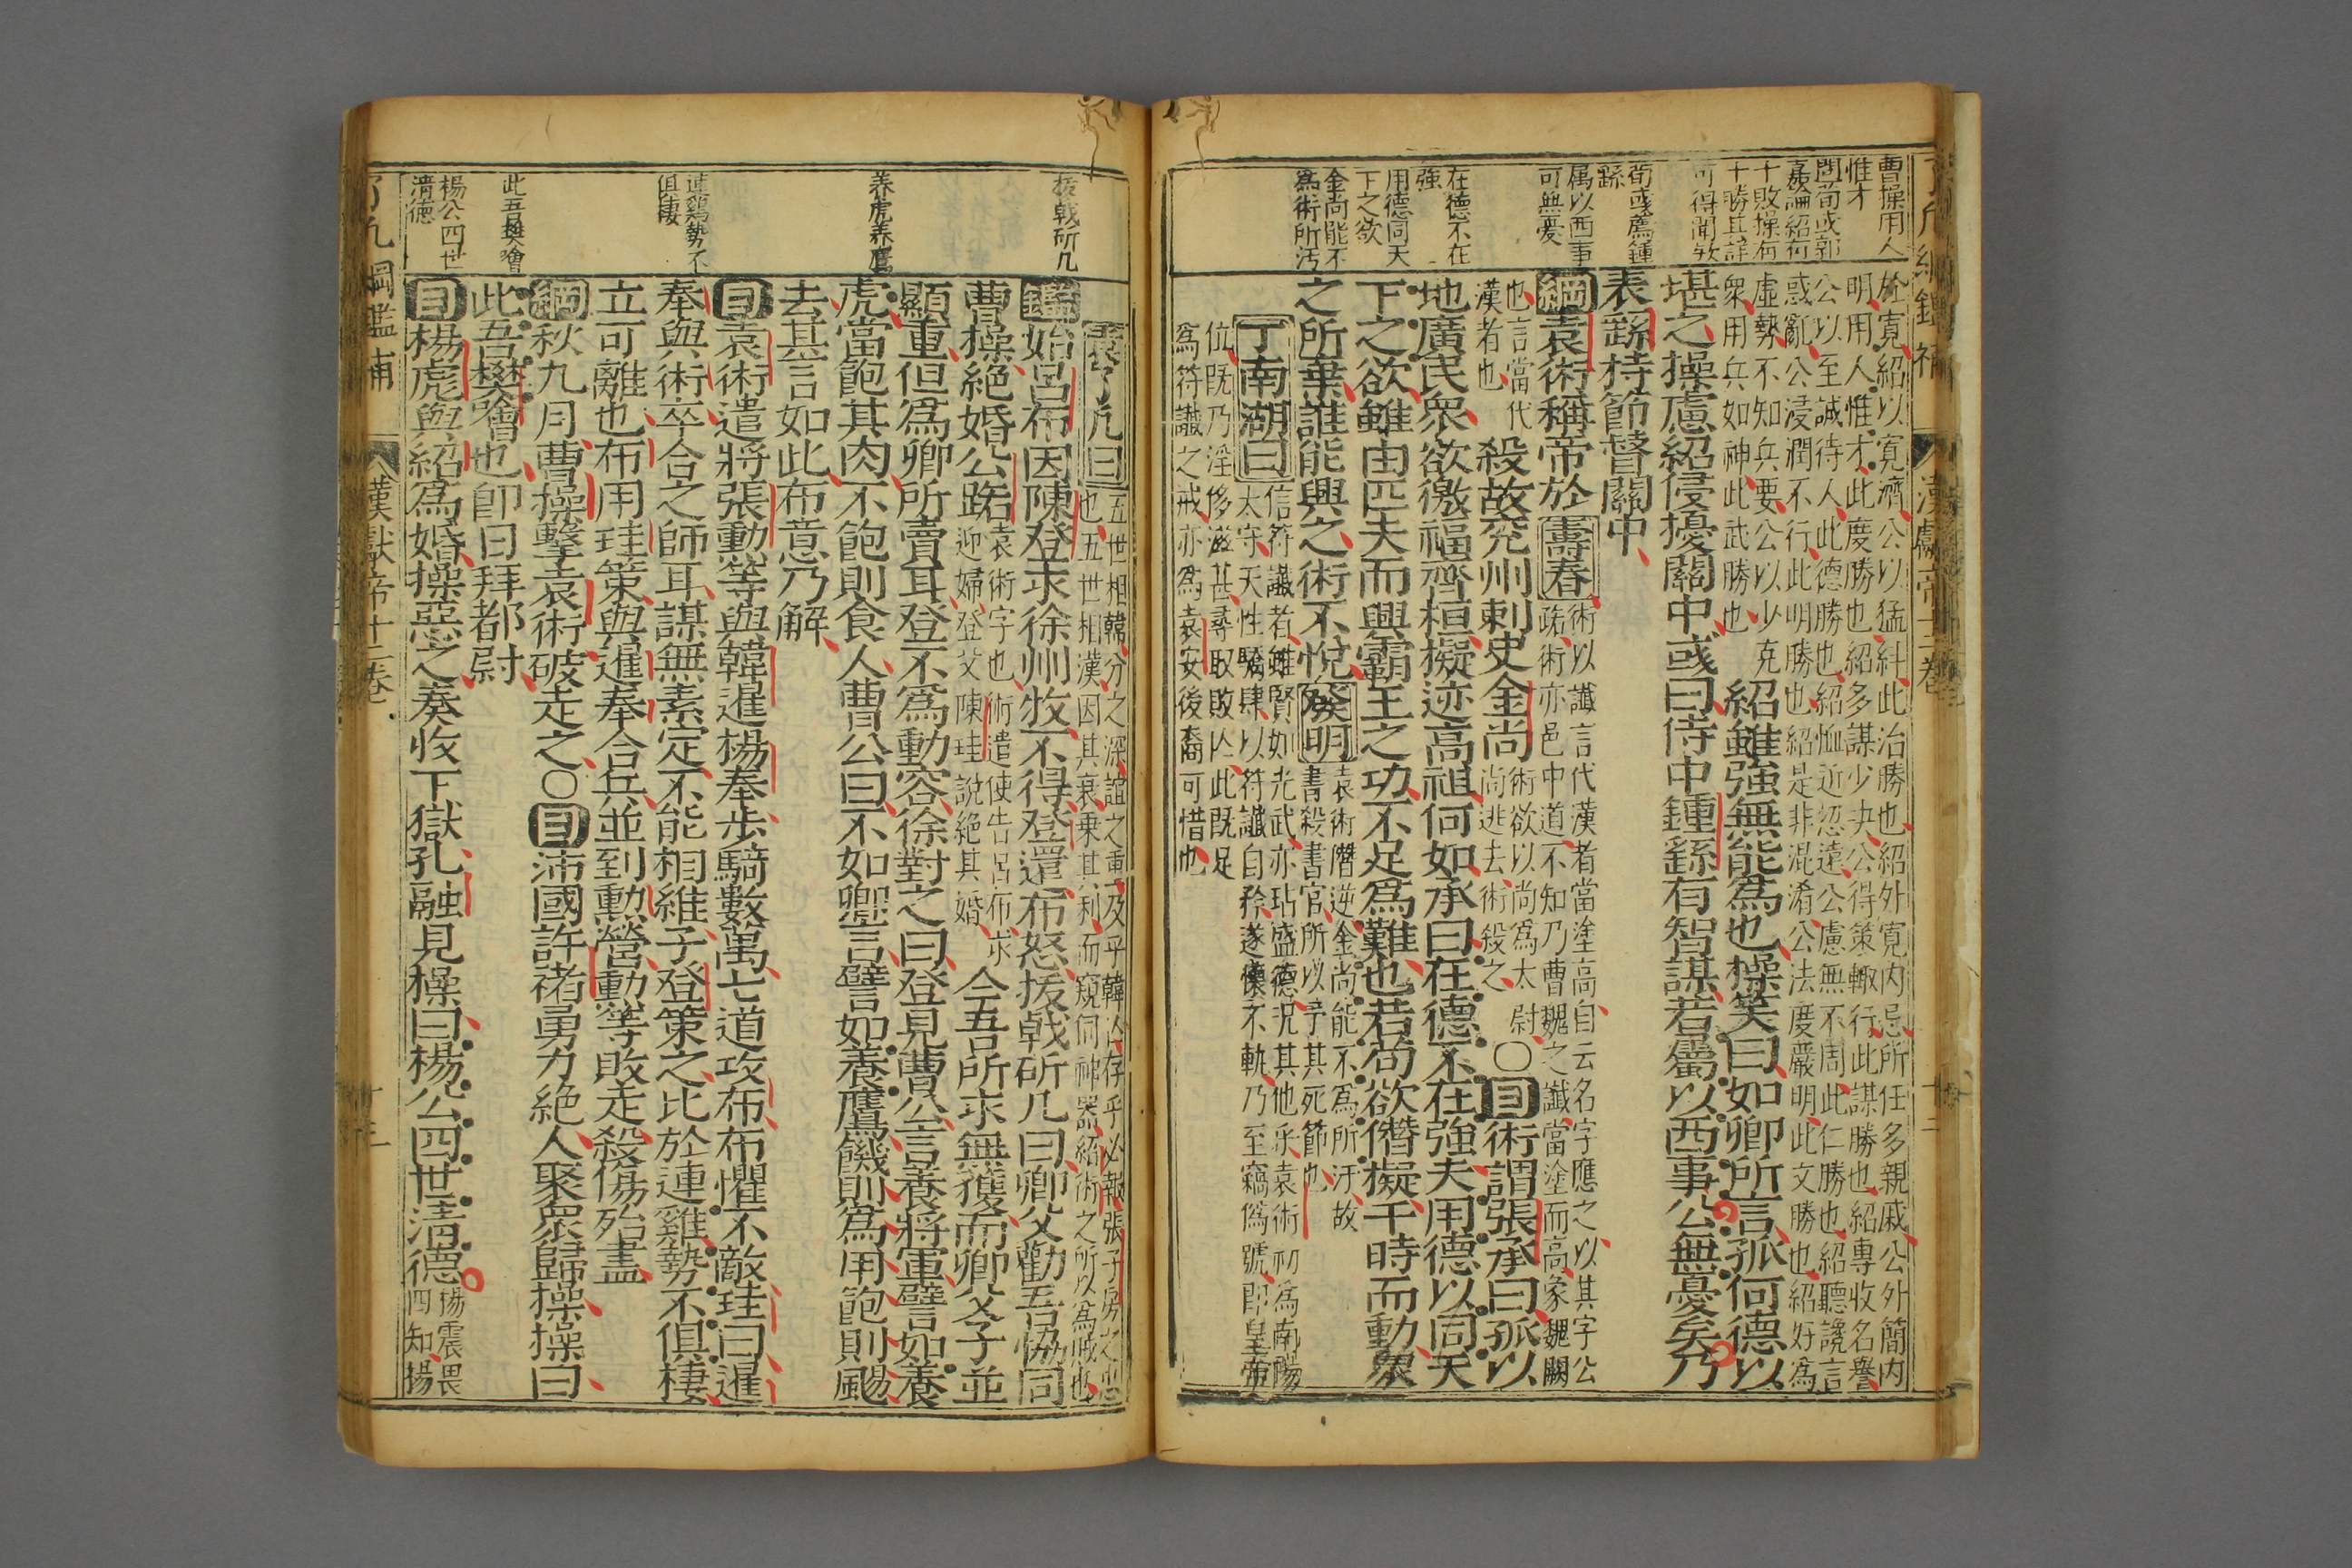 曹操用人
惟才
問荀彧郭
嘉論紹有
十敗操有
十勝其詳
可得聞歟
荀彧薦鍾
繇
属以西事
可無憂
在德不在
強
用德同天
下之欲
金尚能不
為術所汚
於寬紹以寬濟公以猛糾此治勝也紹外寬内忌所任多親戚公外簡内
明用人惟才此度勝也紹多謀少决公得策輙行此謀勝也紹專收名譽
公以至誠待人此德勝也紹恤近忽遠公慮無不周此仁勝也紹聽讒言
惑亂公浸潤不行此明勝也紹是非混淆公法度嚴明此文勝也紹好為
虛勢不知兵要公以少克
衆用兵如神此武勝也
紹雖強無能為也操笑曰如卿所言孤何德以
堪之操慮紹侵擾關中彧曰侍中鍾繇有智謀若屬以西事公無憂矣乃
表繇持節督關中
綱袁術稱帝於壽春
術以讖言代漢者當塗高自云名字應之以其字公
路術亦邑中道不知乃曹魏之讖當塗而高象魏闕
也言當代
漢者也
殺故兖州刺史金尚
術欲以尚為太尉
尚逃去術殺之
○目術謂張承曰孤以
地廣民衆欲徼福齊桓擬迹高祖何如承曰在德不在強夫用德以同天
下之欲雖由匹夫而興霸王之功不足為難也若苟欲僭擬干時而動衆
之所棄誰能興之術不悅
發明
袁術僭逆金尚能不為所汙故
書殺書官所以予其死節也
丁南湖曰
信符讖者雖賢如光武亦玷盛德況其他乎袁術初為南陽
太守天性驕肆以符讖自矜遂懷不軌乃至竊偽號即皇帝
位既乃淫侈滋甚尋取敗亾此既足
為符讖之戒亦為袁安後裔可惜也
了凡綱鑑補
漢獻帝十二卷
拔戟斫几
養虎養鷹
連鷄勢不
俱棲
此吾樊噲
楊公四世
清德
袁了凡曰
五世相韓分之深誼之重及乎韓公存乎必報張子房之忠
也五世相漢因其衰乗其利而窺伺神器紹術之所以為賊也
鑑始呂布因陳登求徐州牧不得登還布怒拔戟斫几曰卿父勸吾恊同
曹操絶婚公路
袁術字也術遣使告呂布求
迎婦登父陳珪說絶其婚
今吾所求無獲而卿父子並
顯重但為卿所賣耳登不為動容徐對之曰登見曹公言養將軍譬如養
虎當飽其肉不飽則食人曹公曰不如卿言譬如養鷹饑則為用飽則颺
去其言如此布意乃解
目袁術遣將張勳等與韓暹楊奉步騎數萬七道攻布布懼不敵珪曰暹
奉與術卒合之師耳謀無素定不能相維子登策之比於連雞勢不俱棲
立可離也布用珪策與暹奉合兵並到勳營勳等敗走殺傷殆盡
綱秋九月曹操擊袁術破走之○目沛國許褚勇力絶人聚衆歸操操曰
此吾樊噲也卽日拜都尉
目楊彪與紹為婚操惡之奏收下獄孔融見操曰楊公四世清德
楊震畏
四知楊
了凡綱鑑補
漢獻帝十二卷